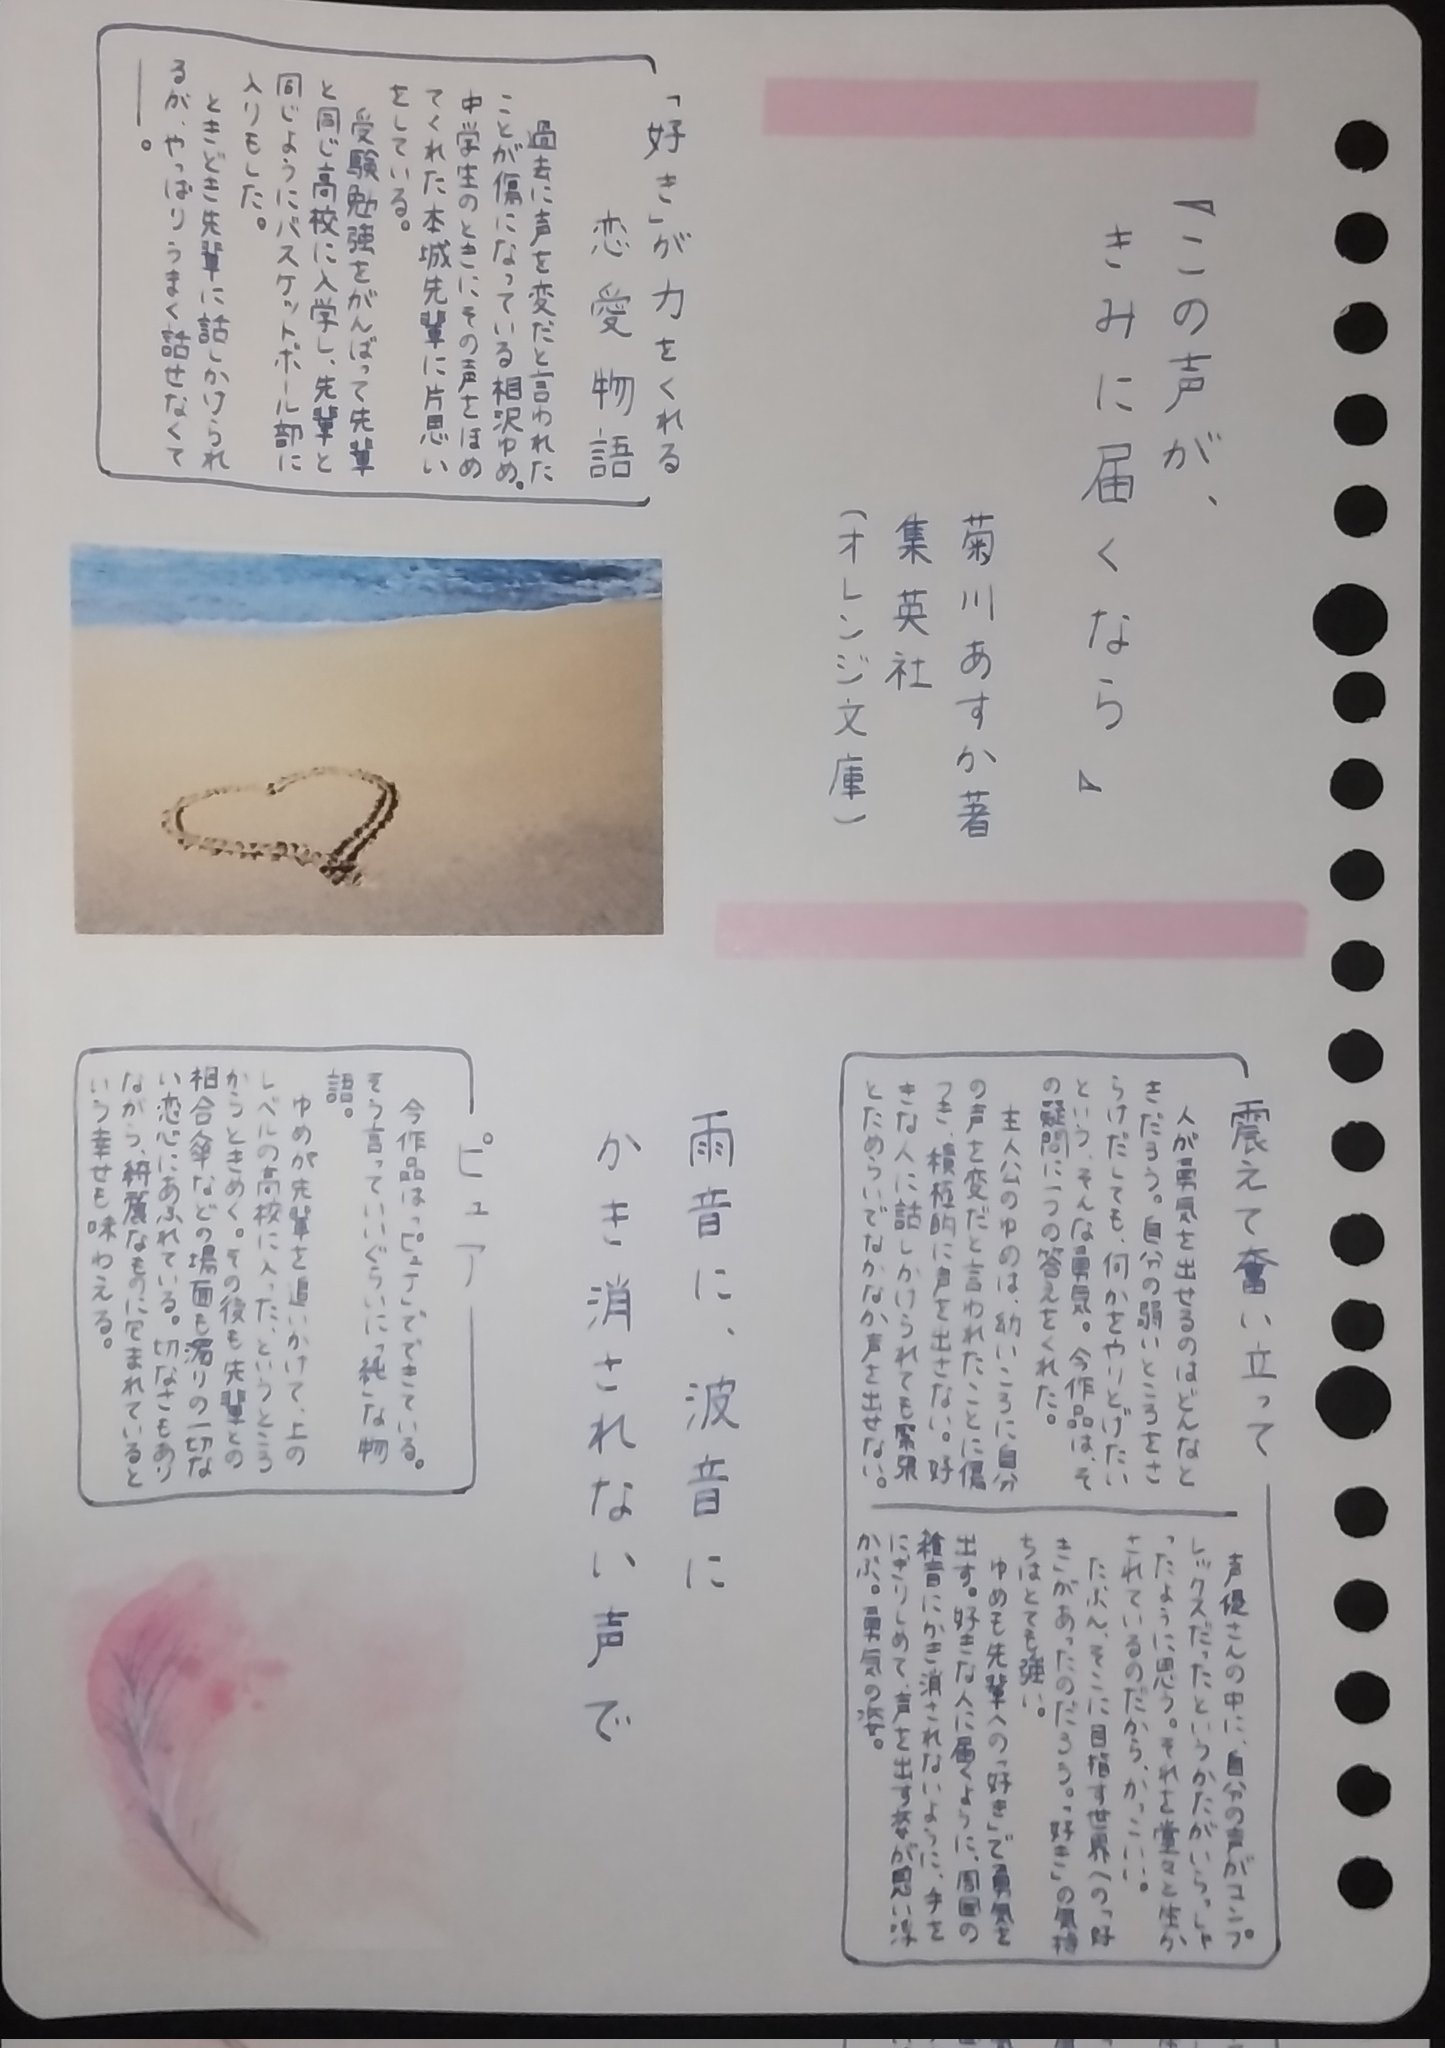 『この声が、
きみに届くなら』
菊川あすか著
集英社
(オレンジ文庫)
「好き」が力をくれる
恋愛物語
過去に声を変だと言われた
ことが傷になっている相沢ゆめ。
中学生のときに、その声をほめ
てくれた本城先輩に片思い
をしている。
受験勉強をがんばって先輩
と同じ高校に入学し、先輩と
同じようにバスケットボール部に
入りもした。
ときどき先輩に話しかけられ
るが、やっぱりうまく話せなくて
――。
震えて奮い立って
人が勇気を出せるのはどんなと
きだろう。自分の弱いところをさ
らけだしても、何かをやりとげたい
という、そんな勇気。今作品は、そ
の疑問に一つの答えをくれた。
主人公のゆめは、幼いころに自分
の声を変だと言われたことに傷
つき、積極的に声を出さない。好
きな人に話しかけられても緊張
とためらいでなかなか声を出せない。
声優さんの中に、自分の声がコンプ
レックスだったというかたがいらっしゃ
ったように思う。それを堂々と生か
されているのだから、かっこいい。
たぶん、そこに目指す世界への「好
き」があったのだろう。「好き」の気持
ちはとても強い。
ゆめも先輩への「好き」で勇気を
出す。好きな人に届くように、周囲の
雑音にかき消されないように、手を
にぎりしめて、声を出す姿が思い浮
かぶ。勇気の姿。
雨音に、波音に
かき消されない声で
ピュア
今作品は「ピュア」でできている。
そう言っていいぐらいに「純」な物
語。
ゆめが先輩を追いかけて、上の
レベルの高校に入った、というところ
からときめく。その後も先輩との
相合傘などの場面も濁りの一切な
い恋心にあふれている。切なさもあり
ながら、綺麗なものに包まれていると
いう幸せも味わえる。